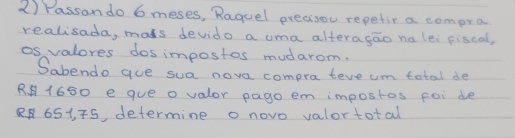 2) Passando 6 meses, Raquel precisou repetir a compra
realisada, mais devido a uma alteração na lei fiscal,
os valores dos impostos mudarom.
Sabendo que sua nova compra teve um total de
R$ 1680 e que o valor pago em impostos foi de
R$ 651,75, determine o novo valor total